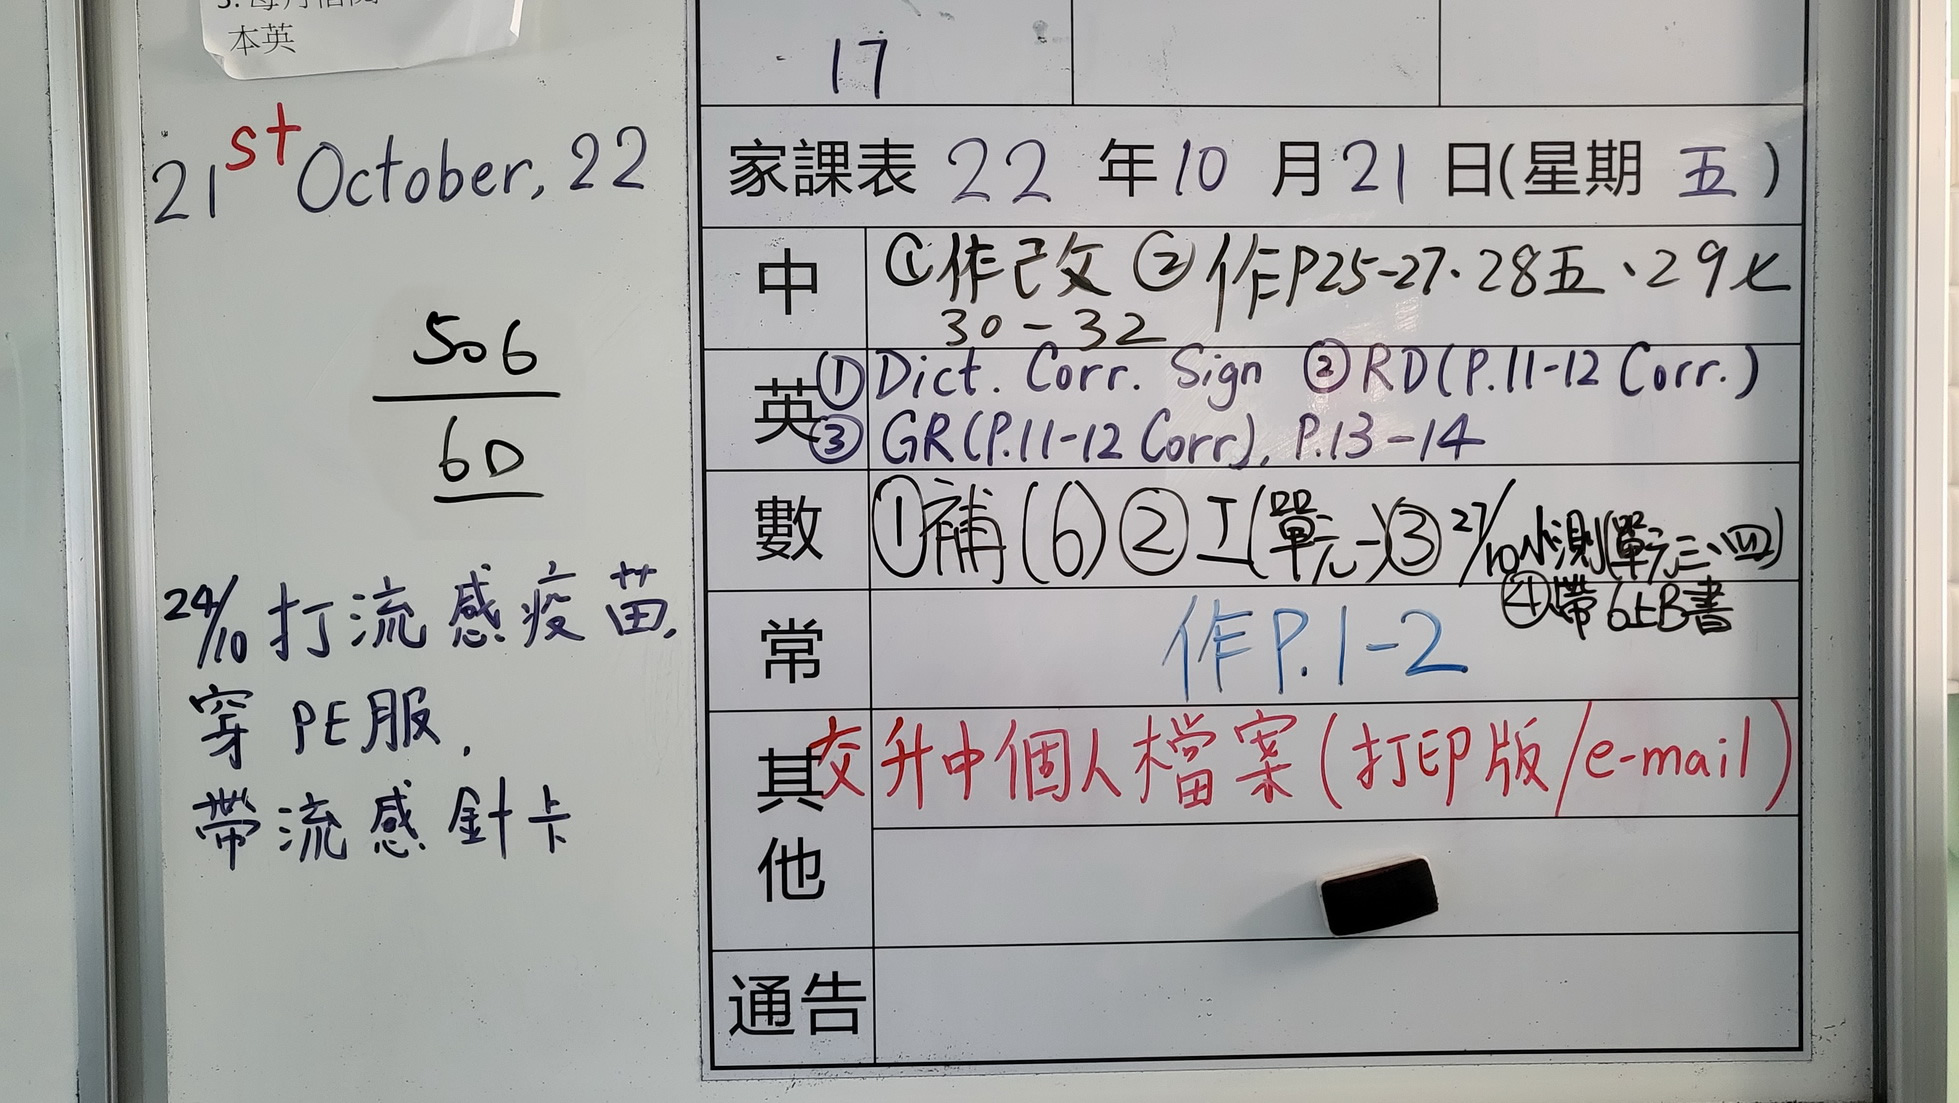 本英
17
21st October, 22
506
6D
24/10 打流感疫苗.
穿 PE服.
帶流感針卡
家課表 22 年 10 月 21 日(星期 五)
中 ①作改文 ②作P25-27·28五、29七
30-32
英 ①Dict. Corr. Sign ②RD(P.11-12 Corr.)
③GR(P.11-12 Corr), P.13-14
數 ①補(6)②工(單元一)③27/10小測(單元三、四)
④帶6上B書
常 作P.1-2
其他 交升中個人檔案(打印版/e-mail)
通告